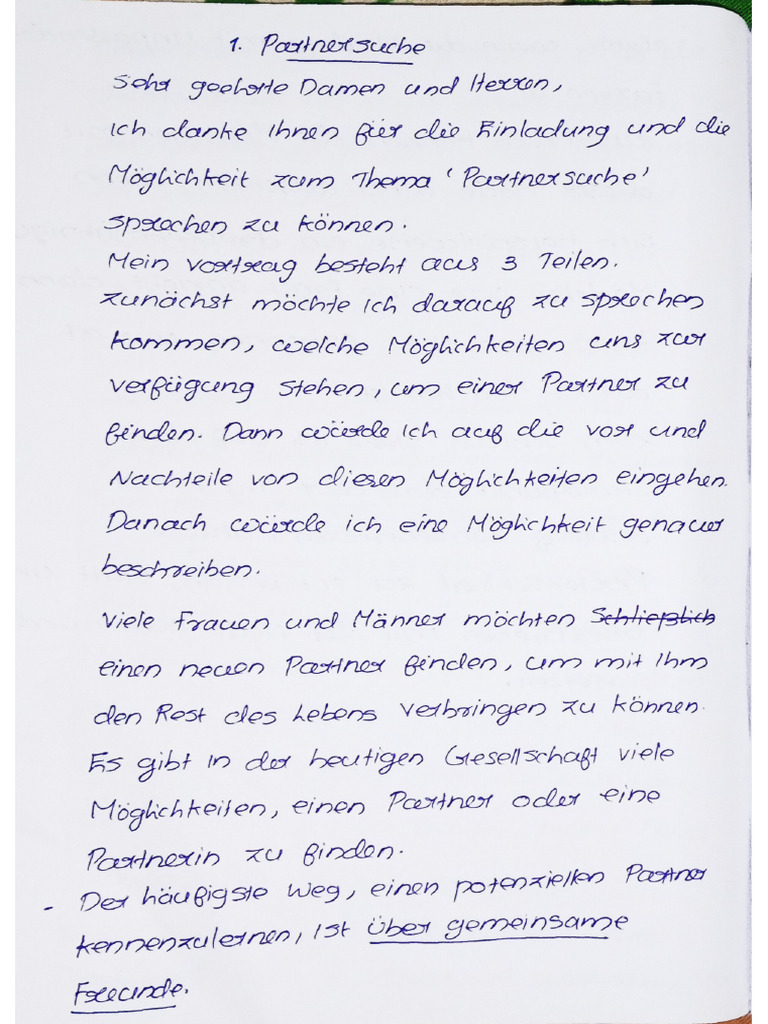 1. Partnersuche
Sehr geehrte Damen und Herren,
Ich danke Ihnen für die Einladung und die
Möglichkeit zum Thema 'Partnersuche'
sprechen zu können.
Mein vortrag besteht aus 3 Teilen.
zunächst möchte ich darauf zu sprechen
kommen, welche Möglichkeiten uns zur
verfügung stehen, um einer Partner zu
finden. Dann würde ich auf die vor und
Nachteile von diesen Möglichkeiten eingehen.
Danach würde ich eine Möglichkeit genauer
beschreiben.
Viele Frauen und Männer möchten Schließlich
einen neuen Partner finden, um mit Ihm
den Rest des Lebens verbringen zu können.
Es gibt in der heutigen Gesellschaft viele
Möglichkeiten, einen Partner oder eine
Partnerin zu finden.
- Der häufigste weg, einen potenziellen Partner
kennenzulernen, ist über gemeinsame
Freunde.